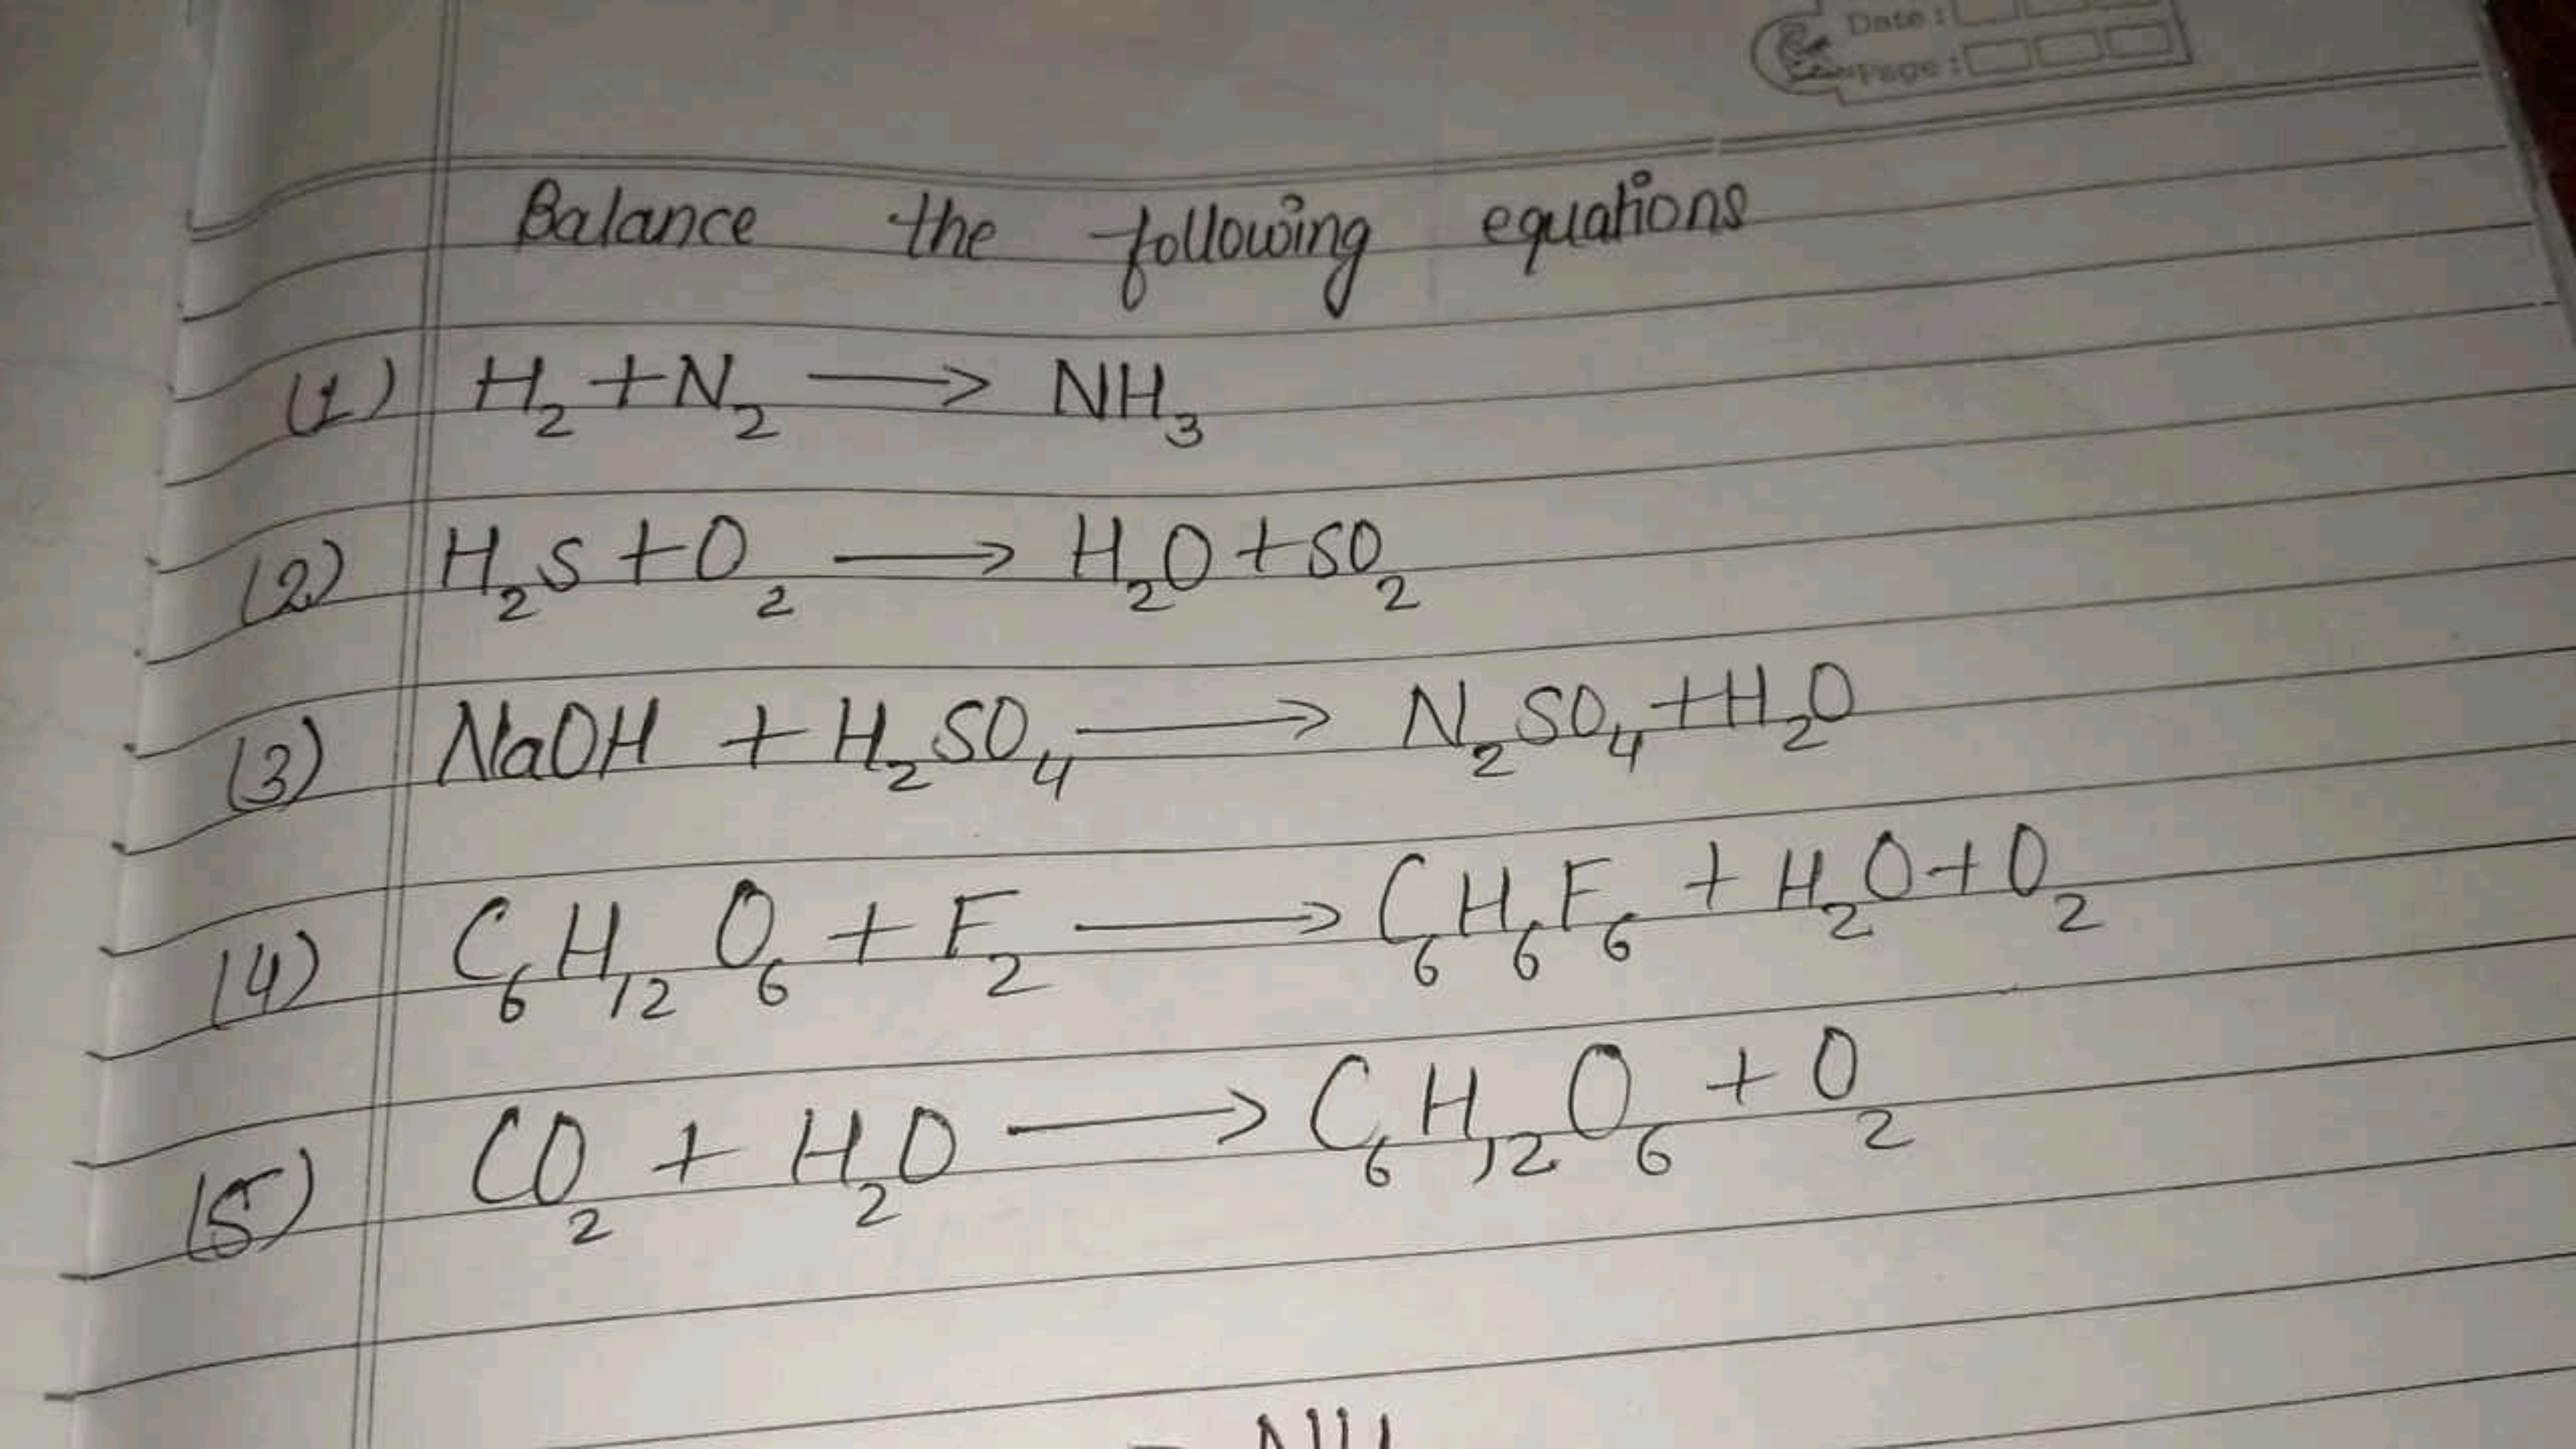 Date :
Page :
Balance the following equations
(1) H₂ + N₂ ⟶ NH₃
(2) H₂S + O₂ ⟶ H₂O + SO₂
(3) NaOH + H₂SO₄ ⟶ N₂SO₄ + H₂O
(4) C₆H₁₂O₆ + F₂ ⟶ C₆H₆F₆ + H₂O + O₂
(5) CO₂ + H₂O ⟶ C₆H₁₂O₆ + O₂